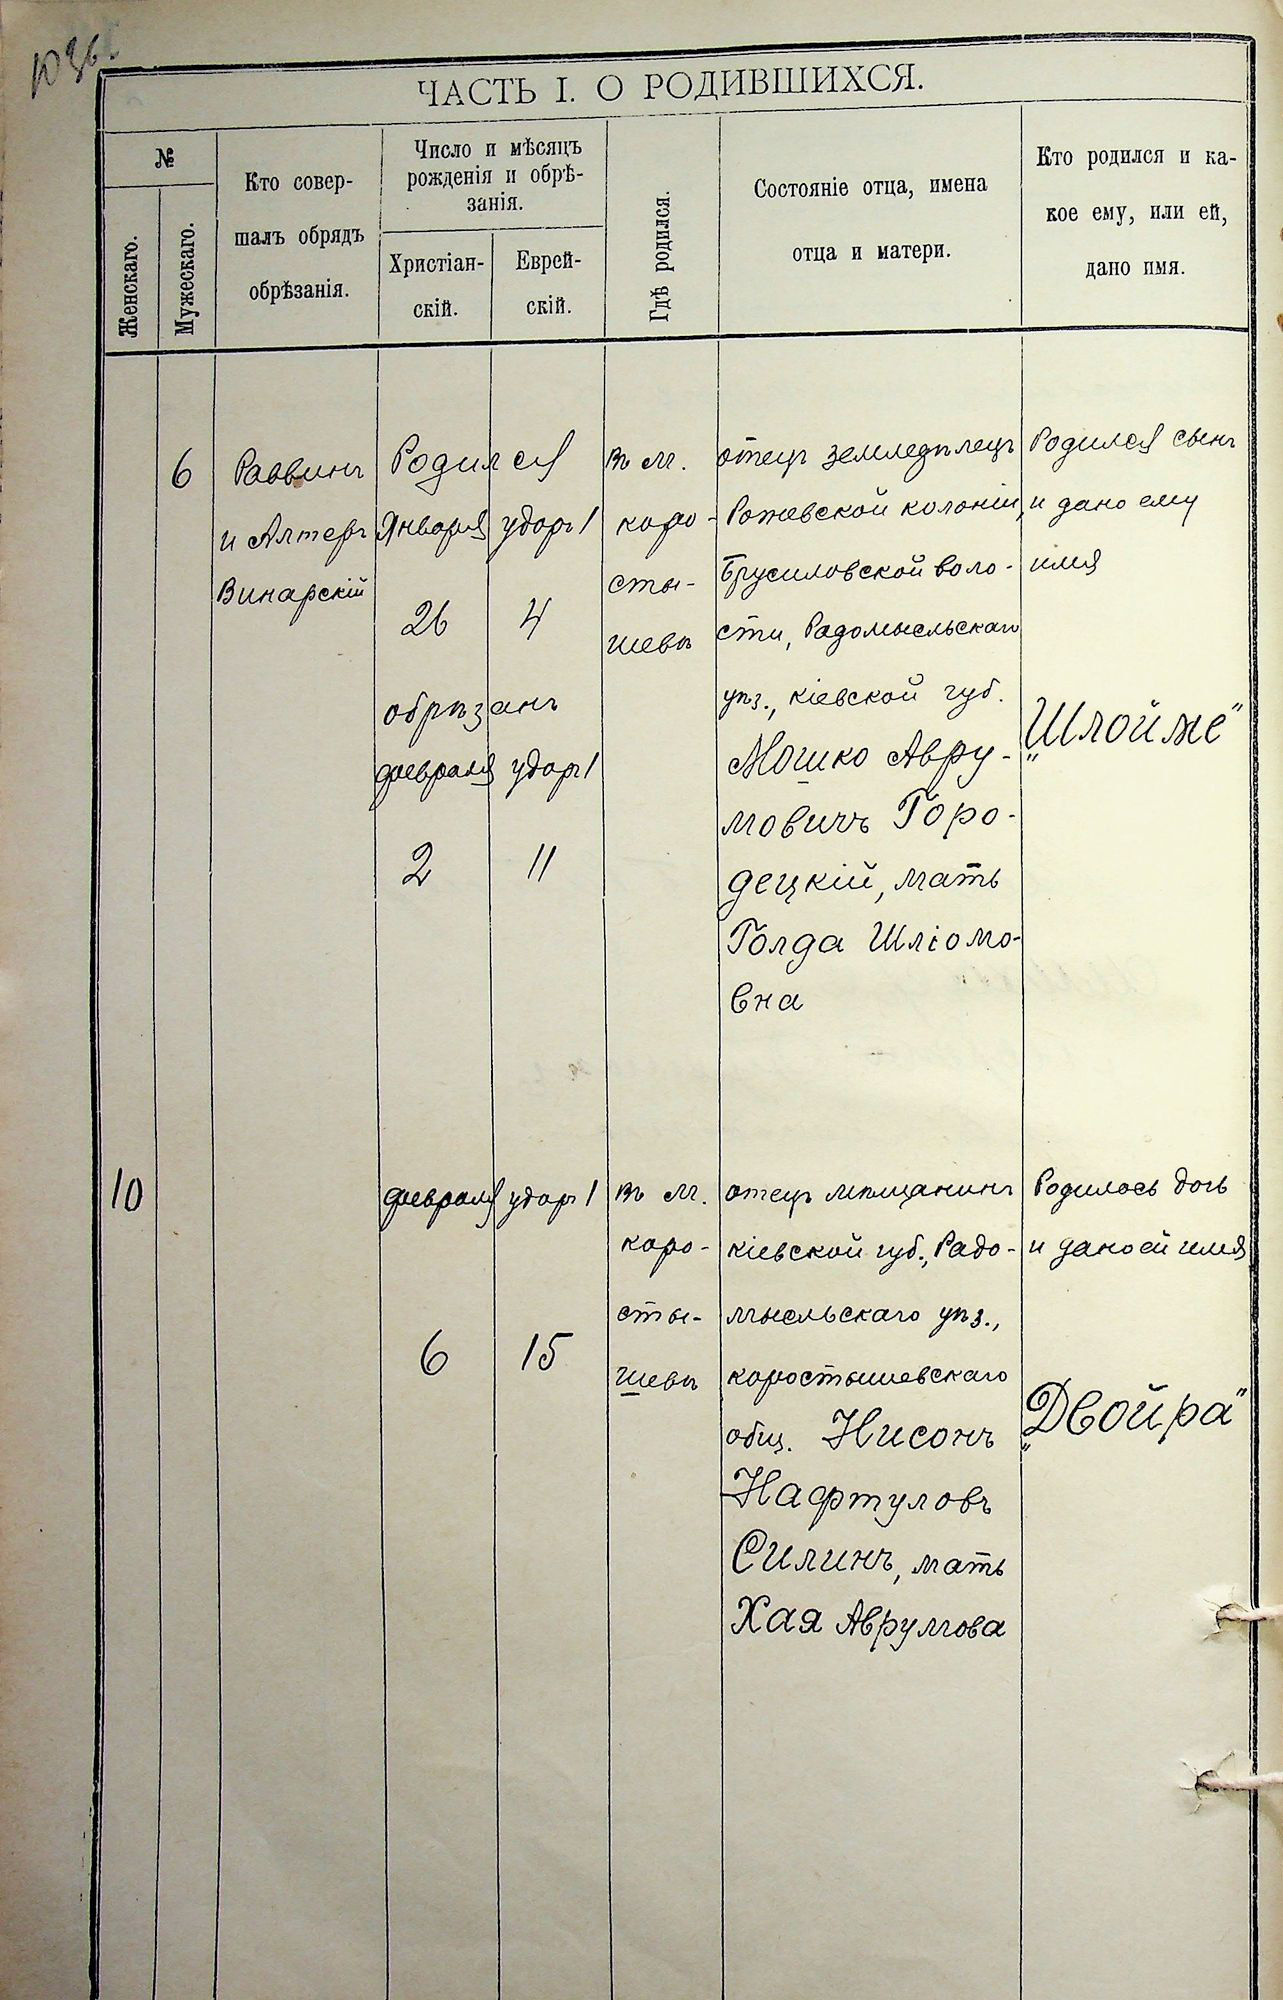 ЧАСТЬ I. О РОДИВШИХСЯ.
№
Женскаго.
Мужескаго.
Кто совер-
шалъ обрядъ
обрѣзанія.
Число и мѣсяцъ
рожденія и обрѣ-
занія.
Христіан-
скій.
Еврей-
скій.
Гдѣ родился.
Состояніе отца, имена
отца и матери.
Кто родился и ка-
кое ему, или ей,
дано имя.
6
Раввинъ
и Алтеръ
Винарскій
Родился
Января
26
обрѣзанъ
февраля
2
удоръ 1
4
удоръ 1
11
въ м.
коро-
сты-
шевъ
отецъ земледѣлецъ
Рожевской колоніи,
Брусиловской воло-
сти, Радомысльскаго
уѣз., кіевской губ.
Мошко Авру-
мовичъ Горо-
децкій, мать
Голда Шліомо-
вна
Родился сынъ
и дано ему
имя
„Шлойме"
10
февраля
6
удоръ 1
15
въ м.
коро-
сты-
шевъ
отецъ мѣщанинъ
кіевской губ., Радо-
мысльскаго уѣз.,
коростышевскаго
общ. Нисонъ
Нафтуловъ
Силинъ, мать
Хая Аврумова
Родилось дочь
и дано ей имя
„Двойра"